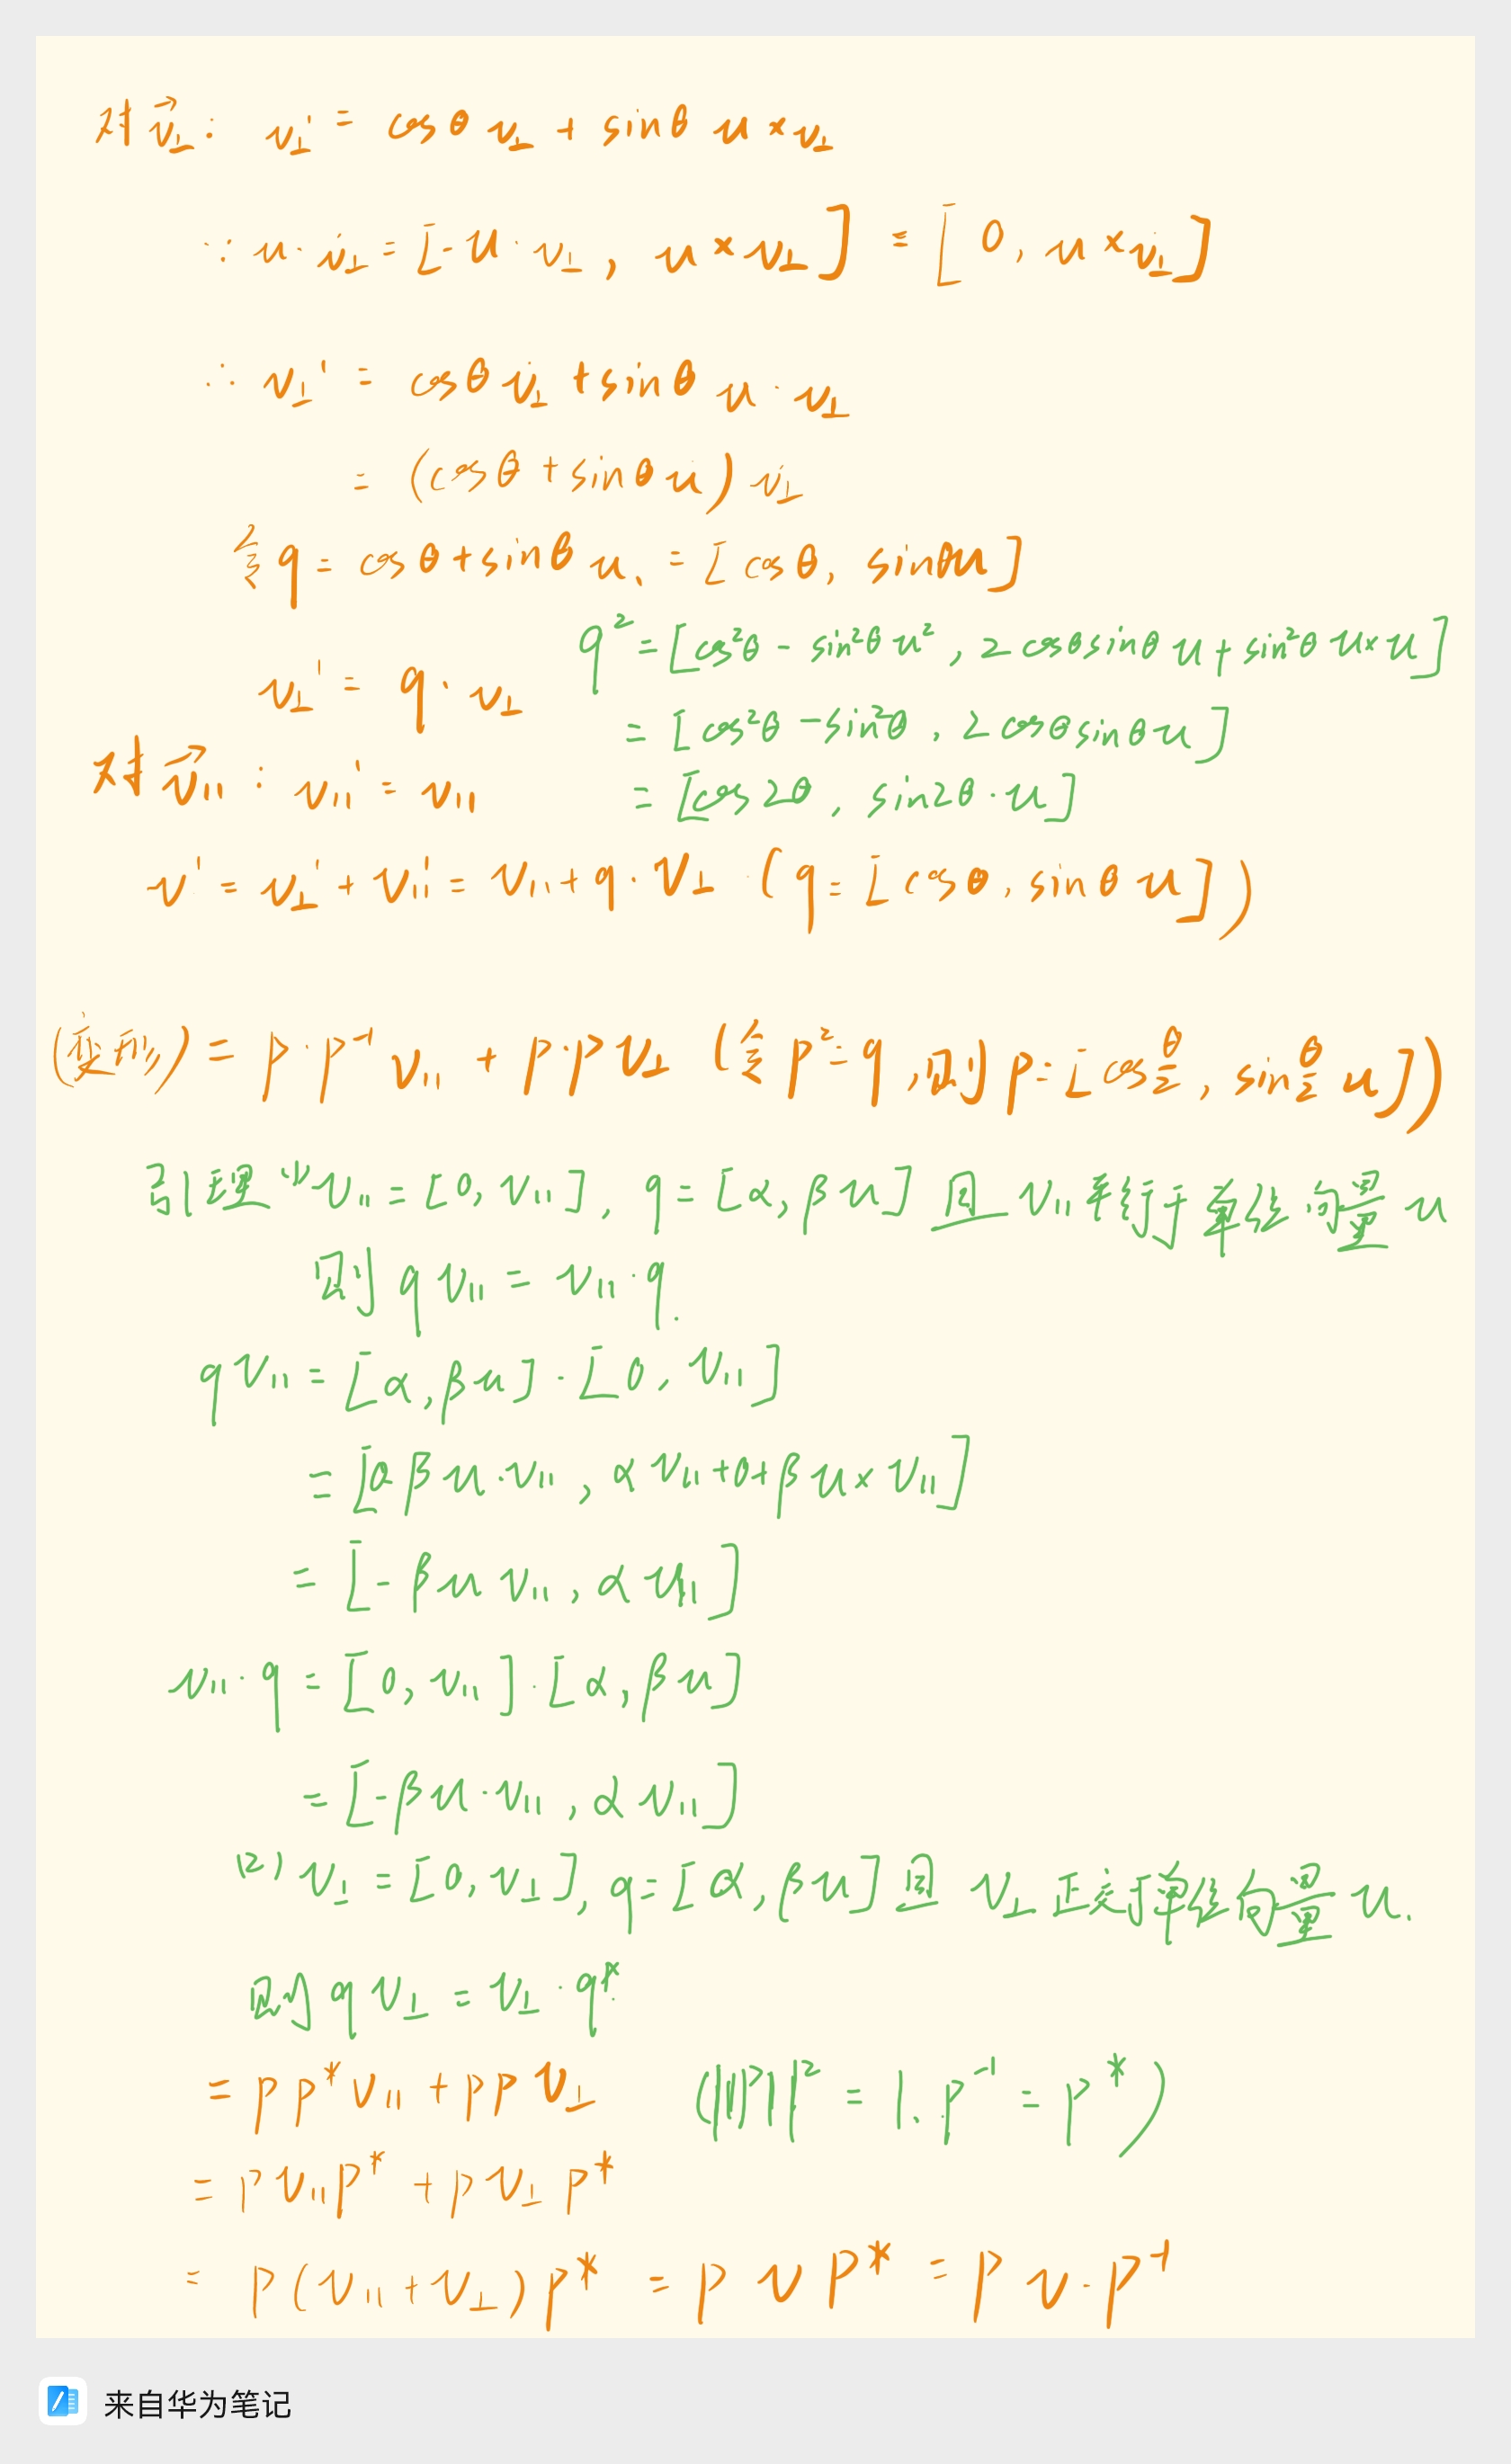 对 v⃗⊥: v⊥' = cosθ v⊥ + sinθ u × v⊥
∵ u · v⊥ = [- u · v⊥ , u × v⊥] = [0, u × v⊥]
∴ v⊥' = cosθ v⊥ + sinθ u · v⊥
= (cosθ + sinθ u) v⊥
令 q = cosθ + sinθ u. = [cosθ, sinθu]
q² = [cos²θ - sin²θ u², 2cosθsinθ u + sin²θ u×u]
v⊥' = q · v⊥
= [cos²θ - sin²θ, 2cosθsinθ u]
对 v⃗∥ : v∥' = v∥
= [cos2θ, sin2θ · u]
v' = v⊥' + v∥' = v∥ + q · v⊥ (q = [cosθ, sinθ u])
(变形) = p · p⁻¹ v∥ + p · p v⊥ (令 p² = q, 则 p = [cos θ/2, sin θ/2 u])
引理 (1) v∥ = [0, v∥], q = [α, βu] 且 v∥ 平行于单位向量 u
则 q v∥ = v∥ · q.
q v∥ = [α, βu] · [0, v∥]
= [0 βu · v∥, α v∥ + 0 + βu × v∥]
= [- βu v∥, α v∥]
v∥ · q = [0, v∥] · [α, βu]
= [- βu · v∥, α v∥]
(2) v⊥ = [0, v⊥], q = [α, βu] 且 v⊥ 正交于单位向量 u.
则 q v⊥ = v⊥ · q*.
= p p* v∥ + p p v⊥ (||p||² = 1. p⁻¹ = p*)
= p v∥ p* + p v⊥ p*
= p (v∥ + v⊥) p* = p v p* = p v · p⁻¹
来自华为笔记